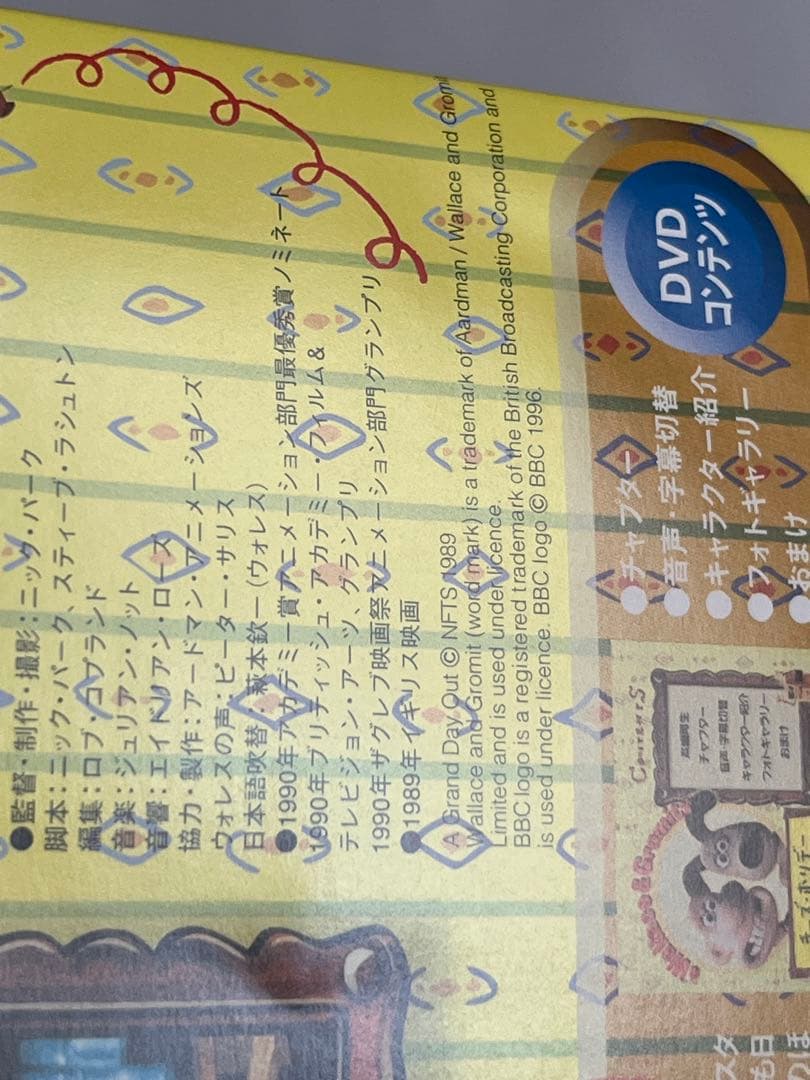 ●監督・制作・撮影：ニック・パーク
脚本：ニック・パーク、スティーブ・ラシュトン
編集：ロブ・コプランド
音楽：ジュリアン・ノット
音響：エイドリアン・ローズ
協力・製作：アードマン・アニメーションズ
ウォレスの声：ピーター・サリス
日本語吹替：萩本欽一（ウォレス）
●1990年アカデミー賞アニメーション部門最優秀賞ノミネート
1990年ブリティッシュ・アカデミー・フィルム&
テレビジョン・アーツ、グランプリ
1990年ザグレブ映画祭アニメーション部門グランプリ
●1989年イギリス映画
A Grand Day Out © NFTS 1989
Wallace and Gromit (word mark) is a trademark of Aardman / Wallace and Gromit
Limited and is used under licence.
BBC logo is a registered trademark of the British Broadcasting Corporation and
is used under licence. BBC logo © BBC 1996.
DVD
コンテンツ
●チャプター
●音声・字幕切替
●キャラクター紹介
●フォトギャラリー
●おまけ
Contents
本編再生
チャプター
音声・字幕切替
キャラクター紹介
フォトギャラリー
おまけ
Wallace & Gromit
チーズ・ホリデー
スタ
も日